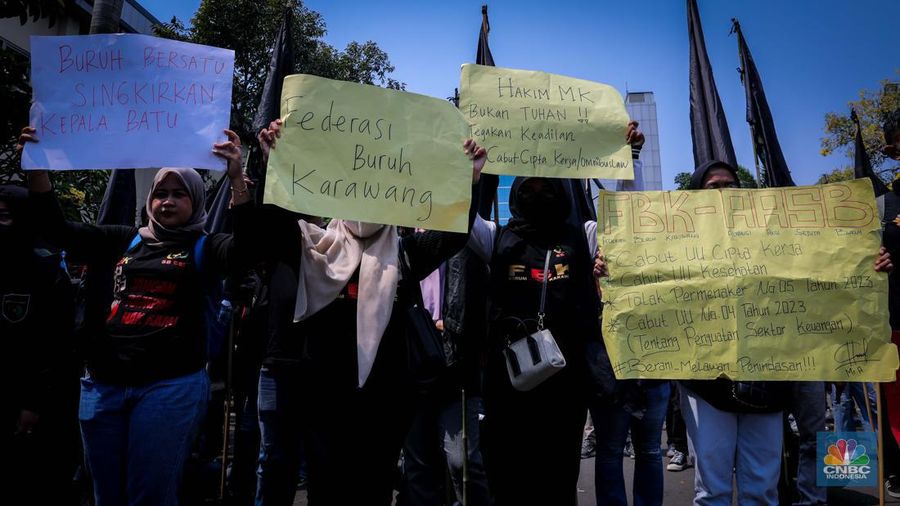 BURUH BERSATU
SINGKIRKAN
KEPALA BATU
Federasi
Buruh
Karawang
HAKIM MK
BUKAN TUHAN !!
TEGAKAN KEADILAN
Cabut Cipta Kerja/omnibuslaw
FBK-AASB
* Cabut UU Cipta Kerja
* Cabut UU Kesehatan
* Tolak Permenaker No.05 Tahun 2023
* Cabut UU No.04 Tahun 2023
(Tentang Penguatan Sektor Keuangan)
#Berani_Melawan_Penindasan!!!
CNBC
INDONESIA